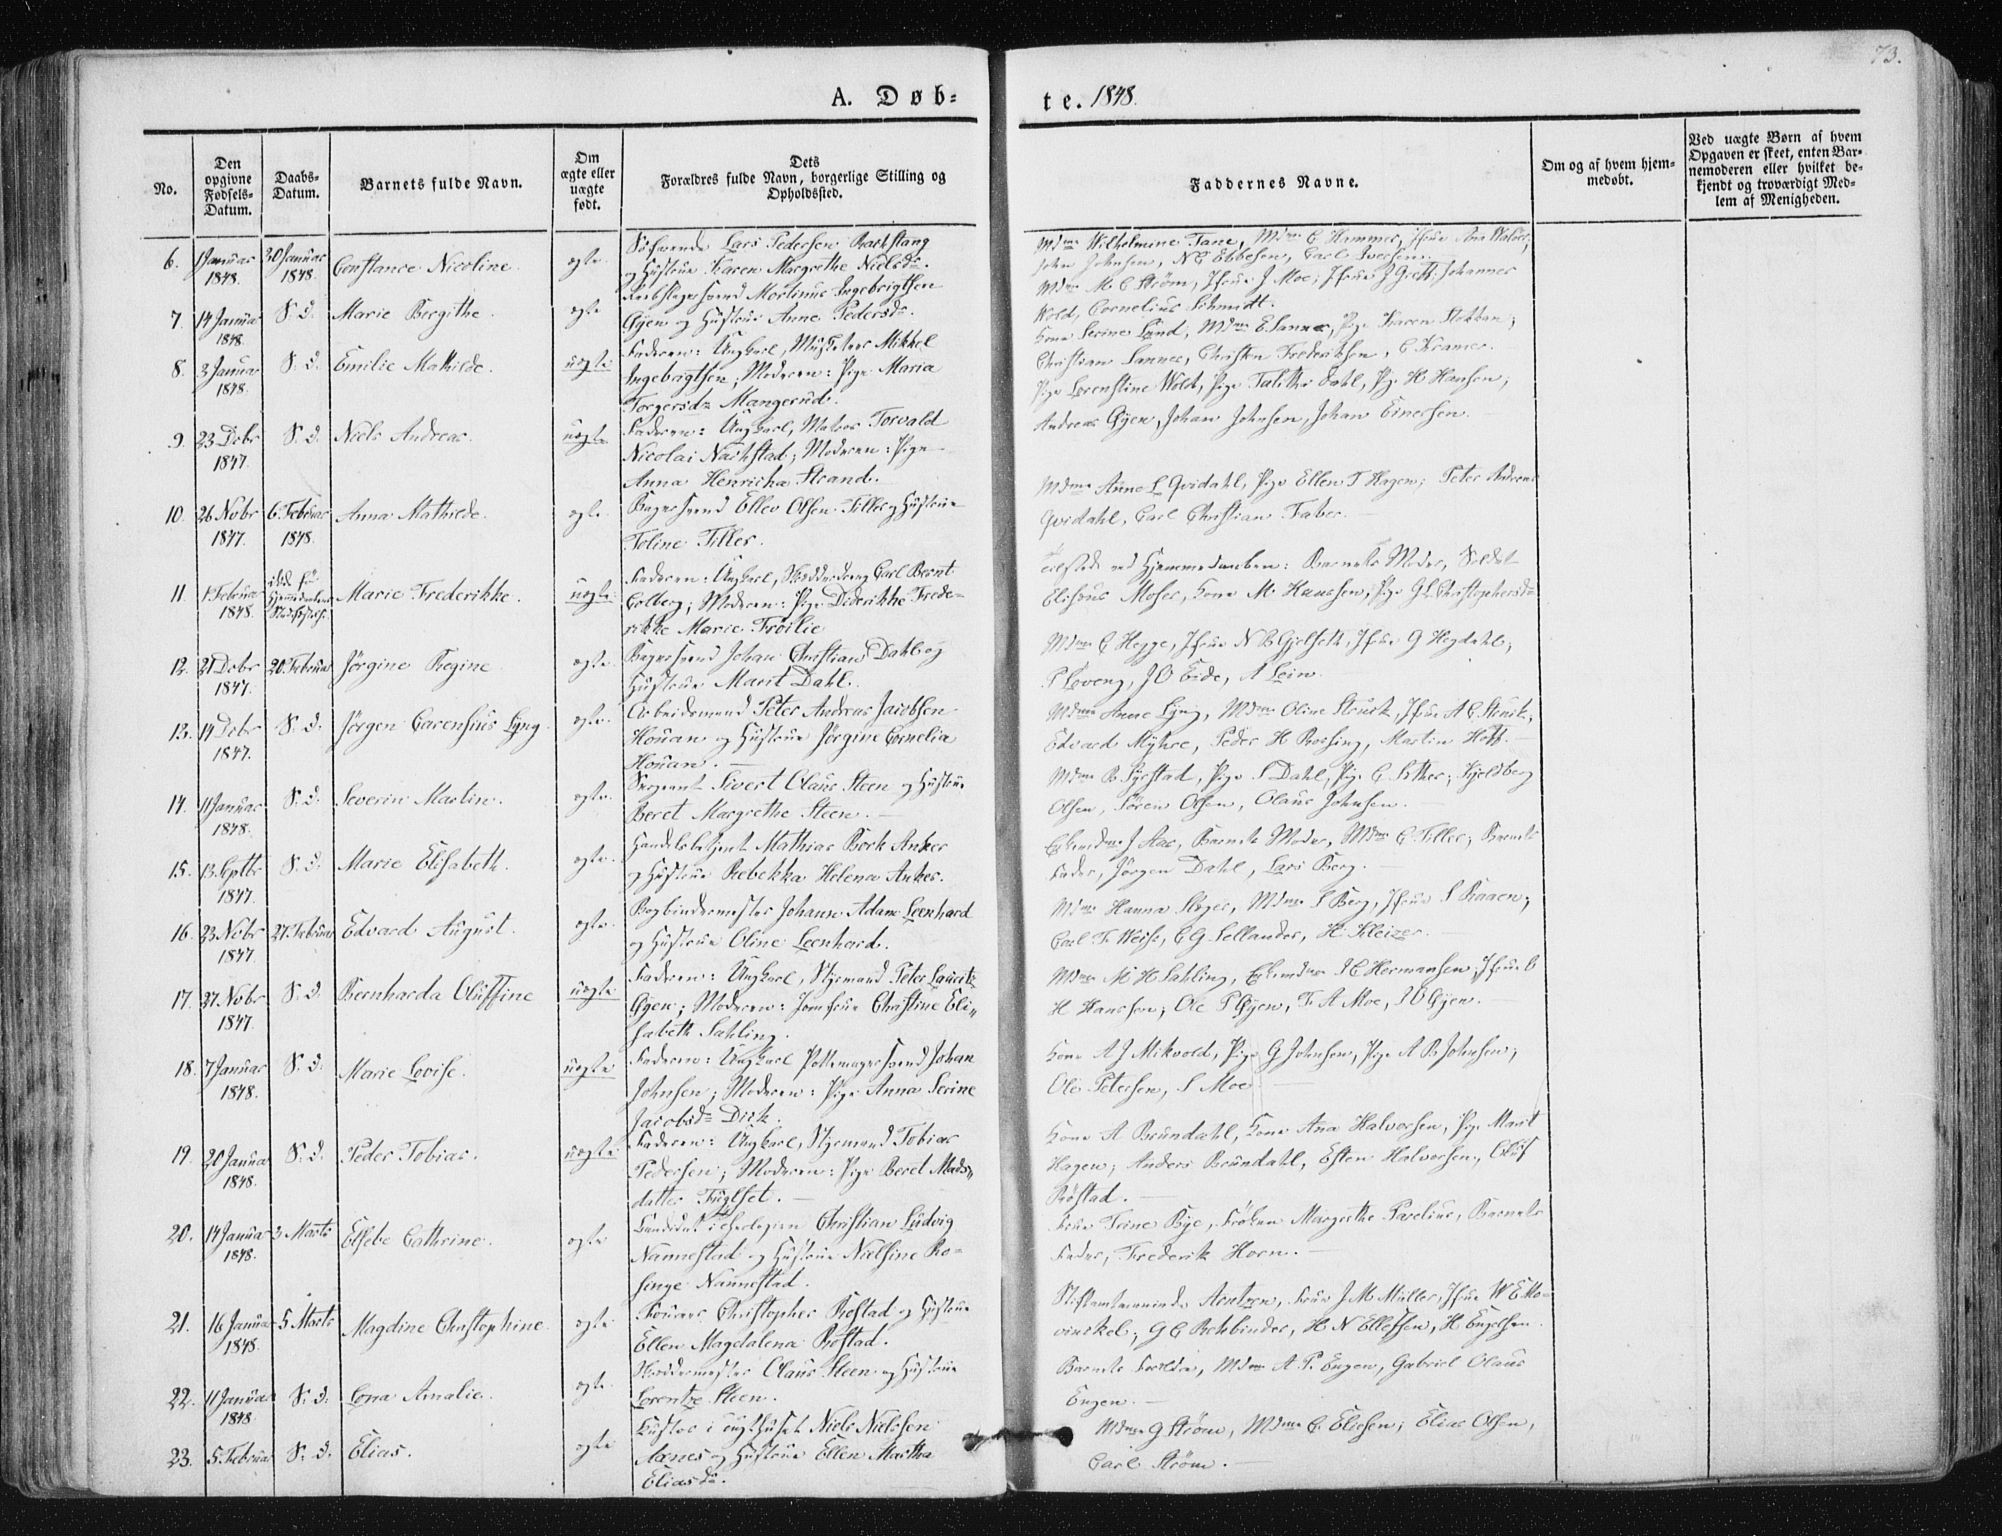 73.
A. Døb-
te. 1848.
No.
Den opgivne Fødsels-Datum.
Daabs-Datum.
Barnets fulde Navn.
Om ægte eller uægte født.
Dets Forældres fulde Navn, borgerlige Stilling og Opholdssted.
Faddernes Navne.
Om og af hvem hjem-medøbt.
Ved uægte Børn af hvem Opgaven er skeet, enten Bar-nemoderen eller hvilket be-kjendt og troværdigt Med-lem af Menigheden.
6. Januar 1848. 30 Januar 1848. Constance Nicoline. ægte. Lars Pedersen
og Hustrue Karen Margrethe Nielsd.
Mdme Wilhelmine Tane, Mdme C Hammer,
John Johnsen, N C Ebbesen, Carl Iversen.
7. 14 Januar 1848. S. d. Marie Bergithe. ægte Morlinus Ingebrigtsen
Gjen og Hustrue Anne Pedersd.
Mdme M. C Strøm, Jfrue J Moe, Johannes
Wold, Cornelius Schmidt.
8. 3 Januar 1848. S. d. Emilie Mathilde. uægte Faderen: Ungkarl, Musketer Mikkel
Ingebrigtsen; Moderen: Pige Maria
Torgersd. Mangerud.
Kone Serine Lund, Mdme E Sannes, Pige Karen Stokkan,
Christian Sannes, Christen Frederiksen, C Kramer.
9. 23 Debr 1847. S. d. Niels Andreas. uægte Faderen: Ungkarl, Matros Torvald
Nicolai Nachstad; Moderen: Pige
Anna Henricha Strand.
Pige Lorenstine Wold, Pige Talitha Dahl, Pige H Hansen,
Andreas Gjen, Johan Johnsen, Johan Einersen.
10. 26 Nobr 1847. 6 Februar 1848. Anna Mathilde. ægte. Ellev Olsen Tiller og Hustrue
Toline Tiller.
Mdme Anne L Qvidahl, Pige Ellen T Hagen, Peter Andreas
Qvidahl, Carl Christian Faber.
11. 1 Februar 1848. Marie Frederikke. uægte Faderen: Ungkarl, Carl Bernt
Colberg; Moderen: Pige Diderikke Frede-
rikke Marie Froilie
ved Hjemmedaaben: Barnets Moder,
Moses, Kone M. Hansen, Pige
12. 21 Debr 1847. 20. Februar Jørgine Regine. ægte. Johan Christian Dahl og
Hustrue Marit Dahl.
Mdme C Hegge, Jfrue N B Gjelseth, Jfrue G Hegdahl,
P Loveng, J O Eide, A Lein.
13. 14 Debr 1847. S. d. Jørgen Carensius Lyng. ægte. Arbeidsmand Peter Andreas Jacobsen
Houan og Hustrue Jørgine Cornelia
Houan.
Mdme Anne Lyng, Mdme Oline Struck, Jfrue A C Struck,
Edvard Myhre, Peder H Rossing, Martin Hoff.
14. 11 Januar 1848. S. d. Severin Martin. ægte. Sergeant Sivert Claus Steen og Hustrue
Beret Margrethe Steen.
Pige S Dahl,
Olsen, Søren Olsen, Olaus Johnsen.
15. 13. Septbr 1847. S. d. Marie Elisabeth. ægte. Handelsbetjent Mathias Bork Anker
og Hustrue Rebekka Helena Anker.
J Aas, Barnets Moder, Mdme C Tiller, Barnets
Fader, Jørgen Dahl, Lars Berg.
16. 23 Nobr 1847. 27. Februar Edvard August. ægte. Bogbindermester Johann Adam Leenhard
og Hustrue Oline Leenhard.
Mdme Hanna Steger, Mdme S Berg, Jfrue S Raaen,
Carl F. Weise, C G Sellander, H. Kleizer.
17. 27. Nobr 1847. S. d. Bernharda Oluffine uægte Faderen: Ungkarl, Styrmand Peter Lauritz
Gjen; Moderen: Jomfrue Christine Eli-
sabeth Sahling.
Mdme M H Sahling, Hermansen, Jfrue C
H Hanssen; Ole P Gjen, F. A Moe, I O Gjen.
18. 7 Januar 1848. S. d. Marie Lovise. uægte Faderen: Ungkarl Pottemagersvend Johan
Johnsen; Moderen: Pige Anna Serine
Jacobsd.
Kone A J Mikvold, Pige G Johnsen, Pige A B Johnsen,
Ole Petersen, S Moe
19. 20 Januar 1848. S. d. Peder Tobias. uægte Faderen: Ungkarl, Styrmand Tobias
Pedersen; Moderen: Pige Beret Mads-
datter Fuglset.
Kone A Brundahl, Kone Ana Halvorsen, Pige Marit
Hagen; Anders Brundahl, Esten Halvorsen, Oluf
Røstad.
20. 14 Januar 1848. 3 Marts Elsebe Cathrine. ægte Candidat i Theologien Christian Ludvig
Nannestad og Hustrue Nielsine Ro-
singe Nannestad.
Frue Trine Bye, Frøken Margrethe Parelius, Barnets
Fader, Frederik Horn.
21. 16 Januar 1848. 5 Marts Magdine Christophine. ægte Christopher Rostad og Hustrue
Ellen Magdalena Rostad.
Stiftamtmandinde Arntzen, Frue J M Müller,
G C Rehbinder, H N Ellefsen, H Engelsen.
22. 11 Januar 1848. S. d. Lona Amalie. ægte. Claus Steen og Hustrue
Lorentze Steen.
Barnets Forældre, Mdme A P. Engen, Gabriel Olaus
Engen.
23. 5. Februar S. d. Elias. ægte Niels Nielssen
Aones og Hustrue Ellen Martha
Eliasd.
Mdme G Strøm, Mdme C. Eliesen, Elias Olsen,
Carl Strøm.